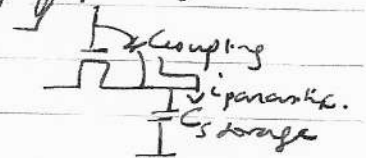 Coupling
i parasitic.
Cs storage